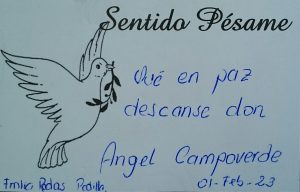 Sentido Pésame
Qué en paz
descanse don
Angel Campoverde
Emilio Rodas Padilla. 01-Feb-23